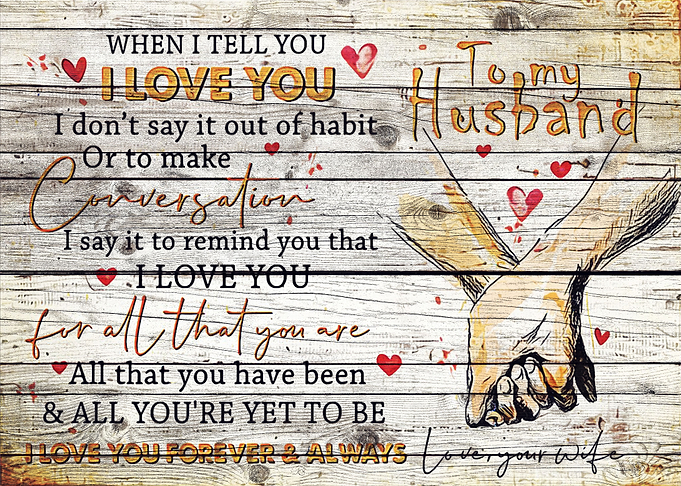 WHEN I TELL YOU
I LOVE YOU
I don't say it out of habit
Or to make
Conversation
I say it to remind you that
I LOVE YOU
for all that you are
All that you have been
& ALL YOU'RE YET TO BE
I LOVE YOU FOREVER & ALWAYS
To my
Husband
Love, your wife